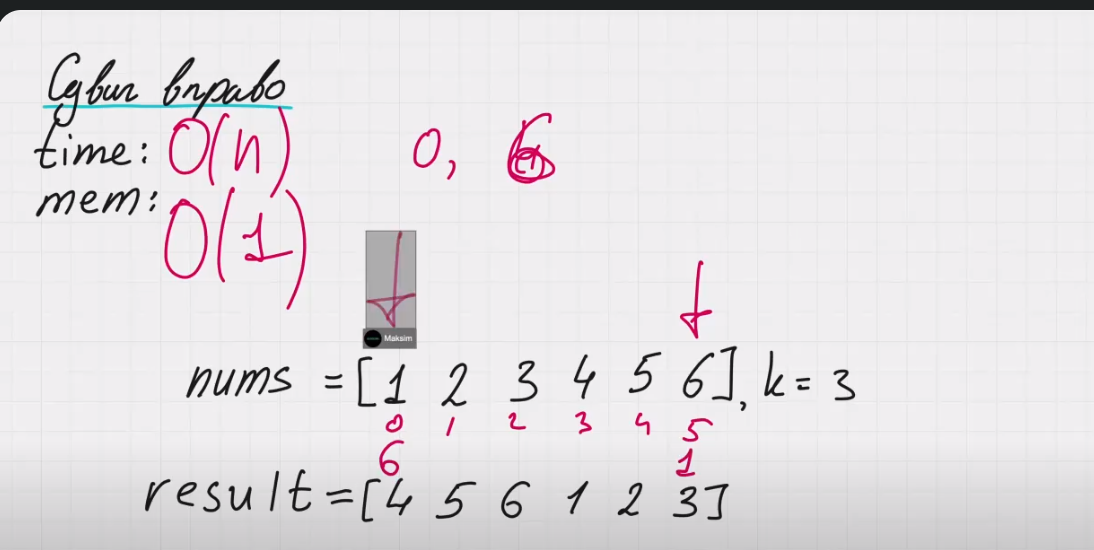 Сдвиг вправо
time: O(n)
0, 6
mem: O(1)
Maksim
nums = [1 2 3 4 5 6], k = 3
0 1 2 3 4 5
6 1
result = [4 5 6 1 2 3]